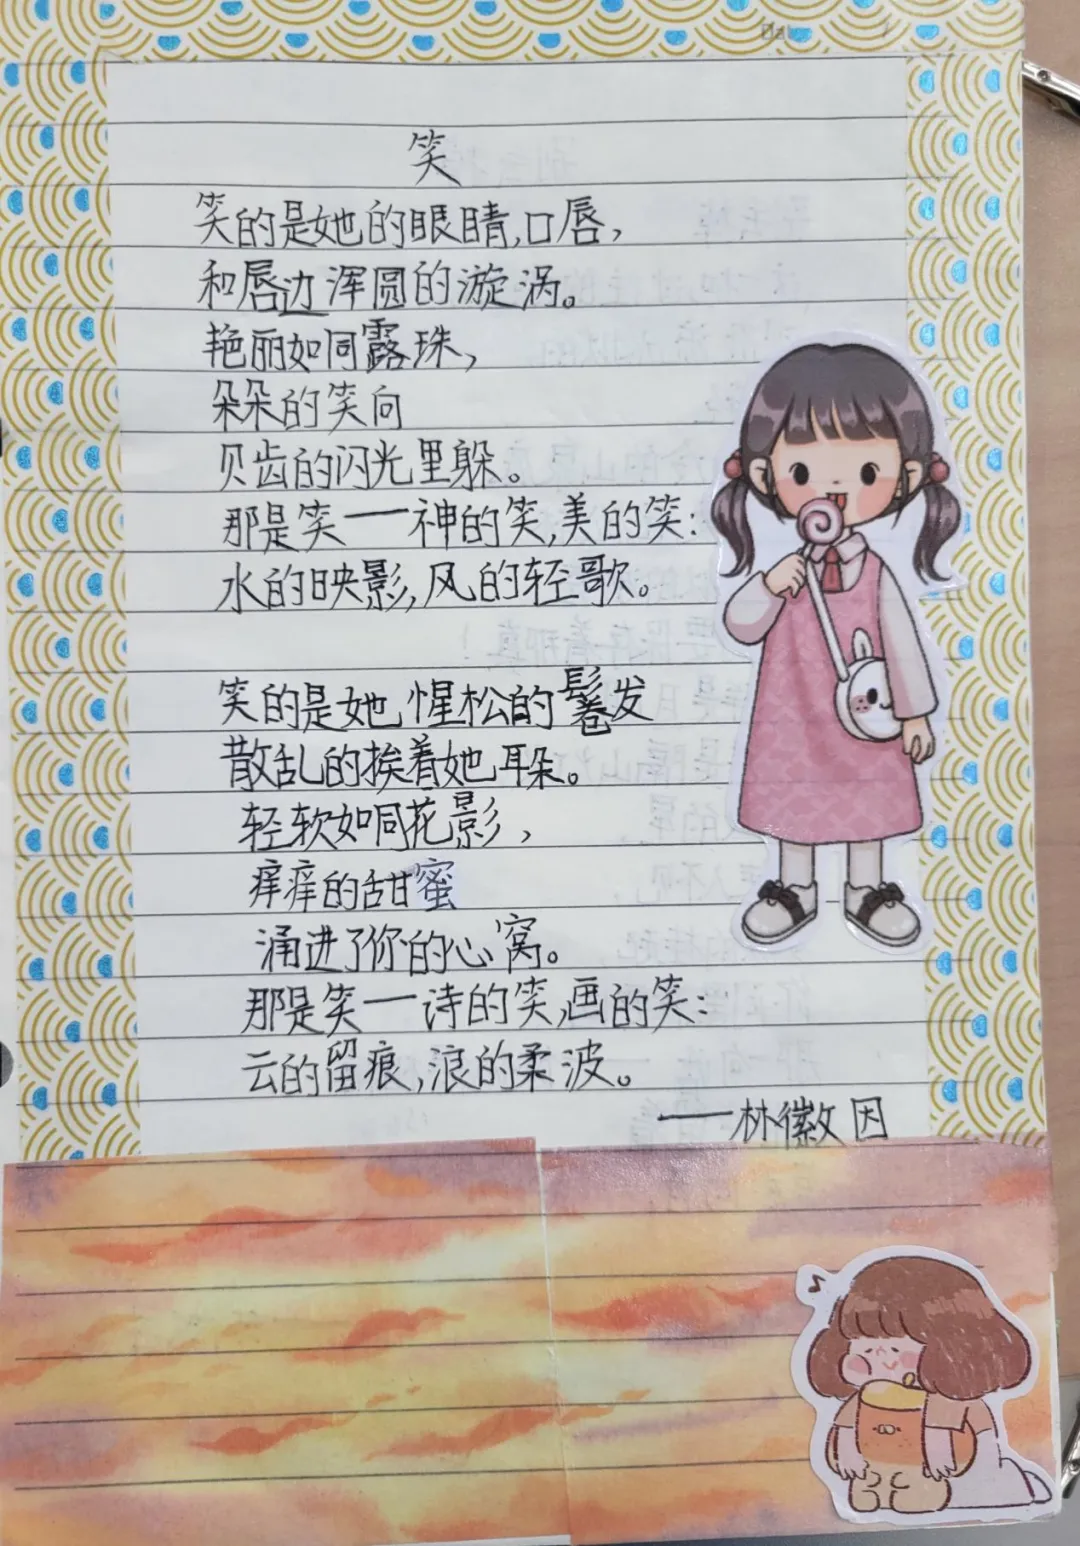 笑
笑的是她的眼睛,口唇,
和唇边浑圆的漩涡。
艳丽如同露珠,
朵朵的笑向
贝齿的闪光里躲。
那是笑——神的笑,美的笑:
水的映影,风的轻歌。
笑的是她惺松的鬈发
散乱的挨着她耳朵。
轻软如同花影,
痒痒的甜蜜
涌进了你的心窝。
那是笑——诗的笑,画的笑:
云的留痕,浪的柔波。
——林徽因